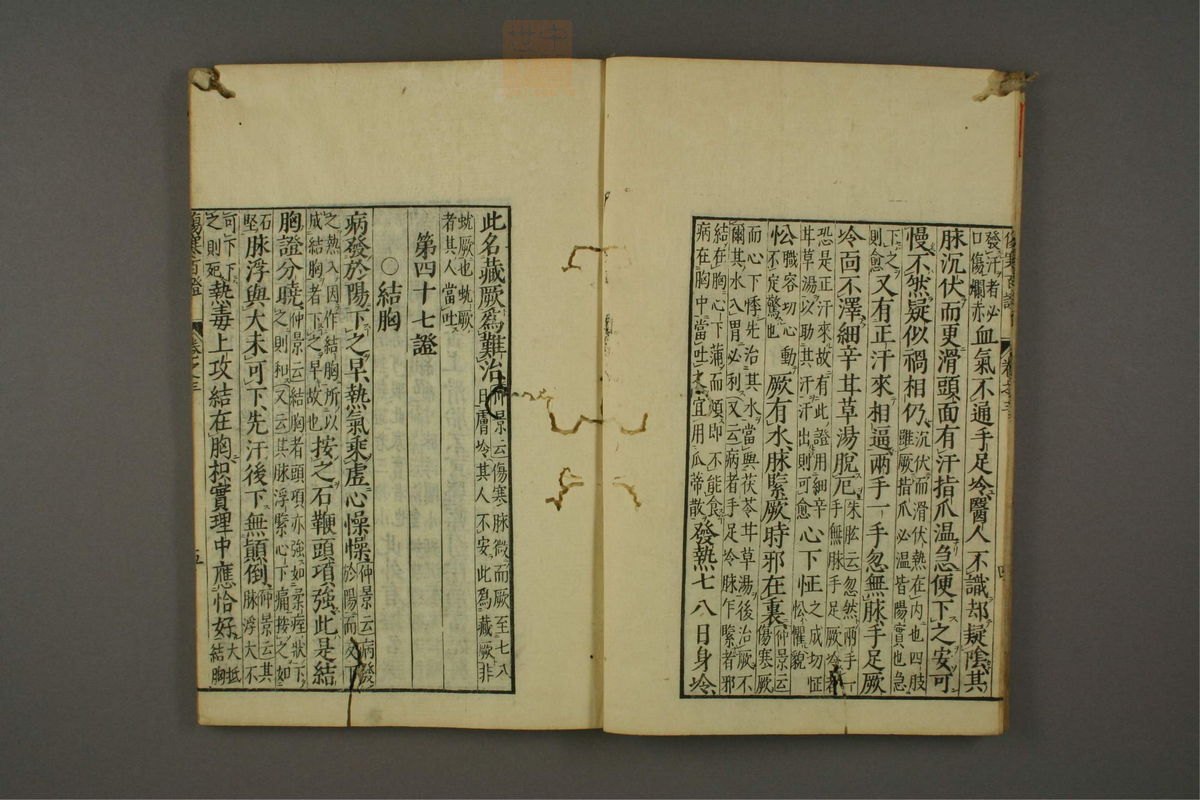 發汗者必口傷爛赤血氣不通手足冷醫人不識却疑陰其
脉沉伏而更滑頭面有汗指爪温急便下之安可
慢不然疑似禍相仍沉伏而滑伏熱在内也四肢雖厥指爪必温皆陽實也急
下之則愈又有正汗來相逼兩手一手忽無脉手足厥
冷面不澤細辛甘草湯脫厄朱肱云忽然兩手一手無脉手足厥冷者
恐是正汗來故有此證用細辛甘草湯以助其汗汗出則可愈心下怔忪懼貌之成切怔
忪職容切心動不定驚也厥有水脉緊厥時邪在裏仲景云傷寒厥
而心下悸先治其水當與茯苓甘草湯後治厥不爾其水入胃必利又云病者手足冷脉乍緊者邪
結在胸心下滿而煩即不能食病在胸中當吐之宜用瓜蒂散發熱七八日身冷
此名藏厥爲難治仲景云傷寒脉微而厥至七八日膚冷其人不安此爲藏厥非
蚘厥也蚘厥者其人當吐
第四十七證
○結胸
病發於陽下之早熱氣乘虛心懆懆仲景云病發於陽而反下
之熱入因作結胸所以成結胸者下之早故也按之石鞕頭項強此是結
胸證分曉仲景云結胸者頭項亦強如柔痓狀下之則和又云其脉浮緊心下痛按之如
石堅脉浮與大未可下先汗後下無顛倒仲景云其脉浮大不
可下下之則死熱毒上攻結在胸枳實理中應恰好大抵結胸
傷寒百證 卷之三
五